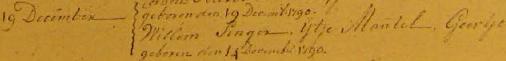 19 December
geboren den 19 Decemb 1790.
Willem Singer. Ijtje Mantel. Geertje
geboren den 15 Decemb 1790.